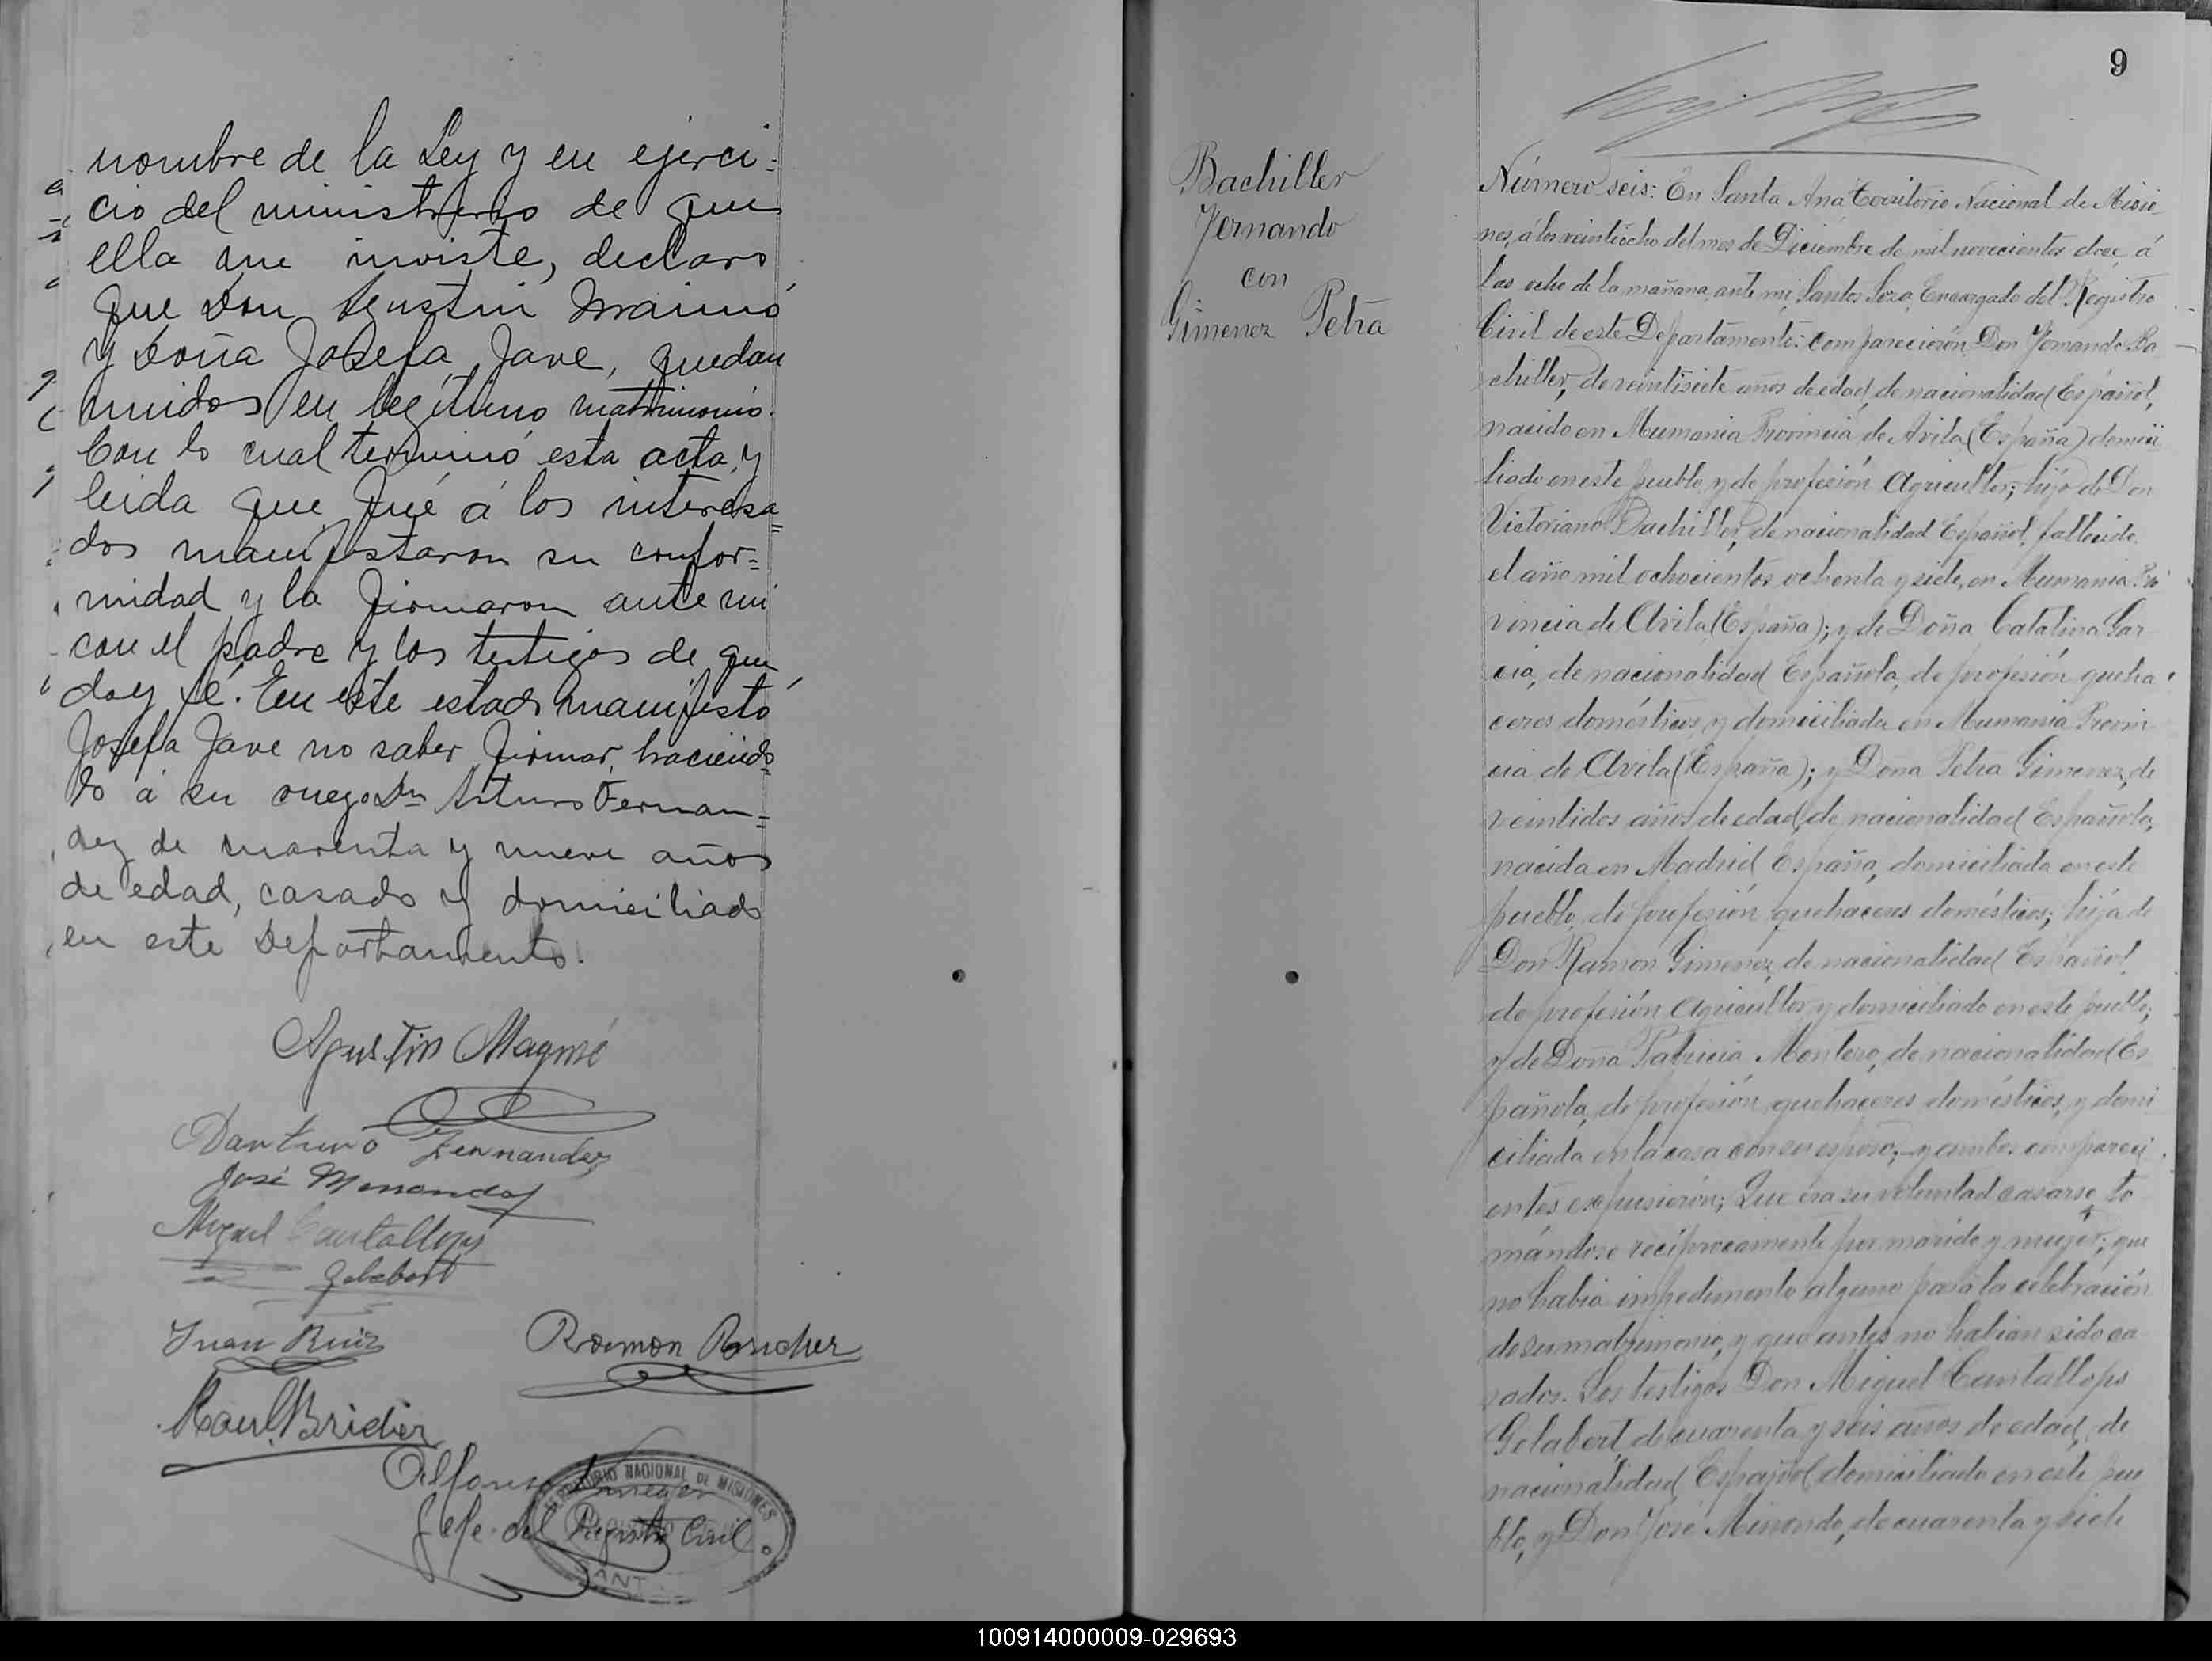 nombre de la Ley y en ejerci=
cio del ministerio de que
ella me inviste, declaro
que Don Agustin Maimó
y Doña Josefa Jave, quedan
unidos en legítimo matrimonio.
Con lo cual terminó esta acta, y
leida que fué á los interesa=
dos manifestaron su confor=
midad y la firmaron ante mi
con el padre y los testigos de que
doy fé. En este estado manifestó
Josefa Jave no saber firmar, haciendo
lo á su ruego Dn Arturo Fernan=
dez de cuarenta y nueve años
de edad, casado y domiciliado
en este Departamento.
Agustin Maymó
Darturo Fernandez
José Menondo
Miguel Cantallops
Gelabert
Juan Ruiz
Ramon
Raul Bricher
Alfonso
Jefe del Registro Civil
TERRITORIO NACIONAL DE MISIONES
9
Bachiller
Fernando
con
Gimenez Petra
Número seis: En Santa Ana Territorio Nacional de Misio
nes, á los veintiocho del mes de Diciembre de mil novecientos doce, á
las ocho de la mañana, ante mi, Santos Soza, Encargado del Registro
Civil de este Departamento: comparecieron, Don Fernando Ba
chiller, de veintisiete años de edad, de nacionalidad Español,
nacido en Mumania Provincia de Avila (España) domici
liado en este pueblo, y de profesión Agricultor; hijo de Don
Victoriano Bachiller, de nacionalidad Español, fallecido,
el año mil ochocientos ochenta y siete, en Mumania Pro
vincia de Avila (España); y de Doña Catalina Gar
cia, de nacionalidad Española, de profesión queha
ceres domésticos, y domiciliada en Mumania Provin
cia de Avila (España); y Doña Petra Gimenez, de
veintidos años de edad, de nacionalidad Española,
nacida en Madrid España, domiciliada en este
pueblo, de profesión quehaceres domésticos; hija de
Don Ramon Gimenez, de nacionalidad Español,
de profesión Agricultor y domiciliado en este pueblo;
y de Doña Patricia Montero, de nacionalidad Es
pañola, de profesión quehaceres domésticos, y domi
ciliada en la casa con su esposo;- y ambos compareci
entes expusieron; Que era su voluntad casarse, to
mándose recíprocamente por marido y mujer; que
no habia impedimento alguno para la celebración
de su matrimonio, y que antes no habian sido ca
sados. Los testigos Don Miguel Cantallops
Gelabert, de cuarenta y seis años de edad, de
nacionalidad Español, domiciliado en este pue
blo, y Don José Minondo, de cuarenta y siete
100914000009-029693